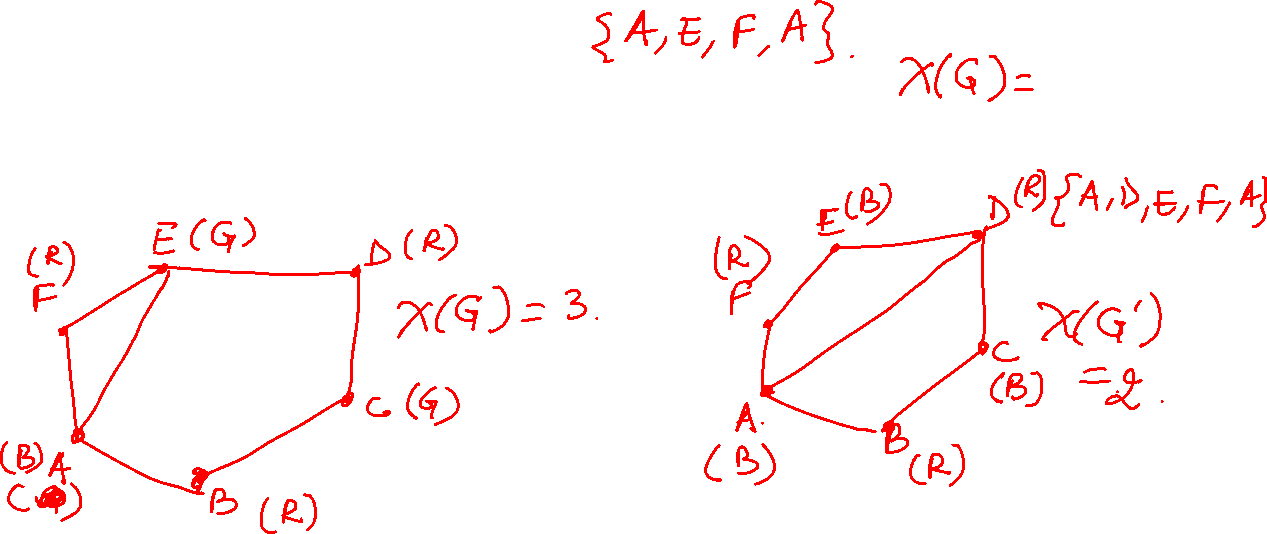 {A, E, F, A}.
χ(G)=
E (G)
D (R)
(R)
F
χ(G) = 3.
C (G)
(B) A
B (R)
E (B)
D (R) {A, D, E, F, A}
(R)
F
χ(G')
= 2.
C
(B)
A.
(B)
B
(R)